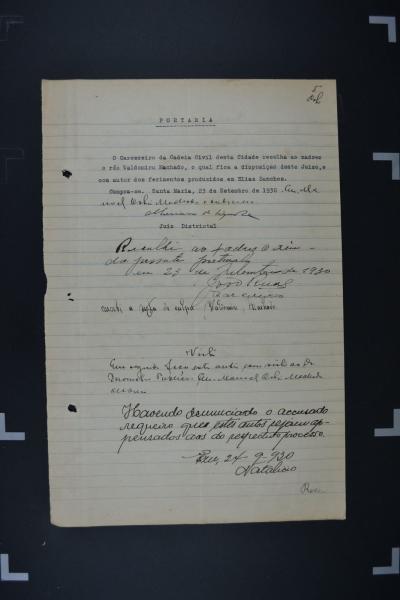 5
PORTARIA
O Carcereiro da Cadeia Civil desta Cidade recolha ao xadrez
o réo Valdomiro Machado, o qual fica a disposição deste Juizo,
com autor dos ferimentos produzidos em Elias Sanches.
Cumpra-se. Santa Maria, 23 de Setembro de 1930. Eu, Ma
noel
Juiz Districtal
Recolhi ao xadrez o réo
da presente portaria
em 23 de Setembro de 1930
João
Carcereiro
recebi a nota de culpa Valdomiro Machado
Vista
Em seguida faço estes autos com vista ao Dr.
Promotor Publico. Eu, Manoel
Havendo denunciado o accusado
requeiro que estes autos sejam ap-
pensados aos do respectivo processo.
24-9-930
Natalicio